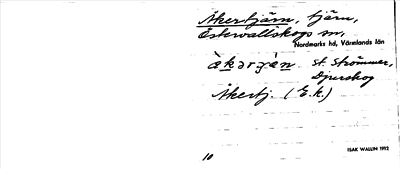 Åkertjärn, tjärn,
Östervallskogs sn,
Nordmarks hd, Värmlands län
St. Strömmer,
Djurskog
Åkertj. (E.k.)
10
ISAK WALLIN 1912